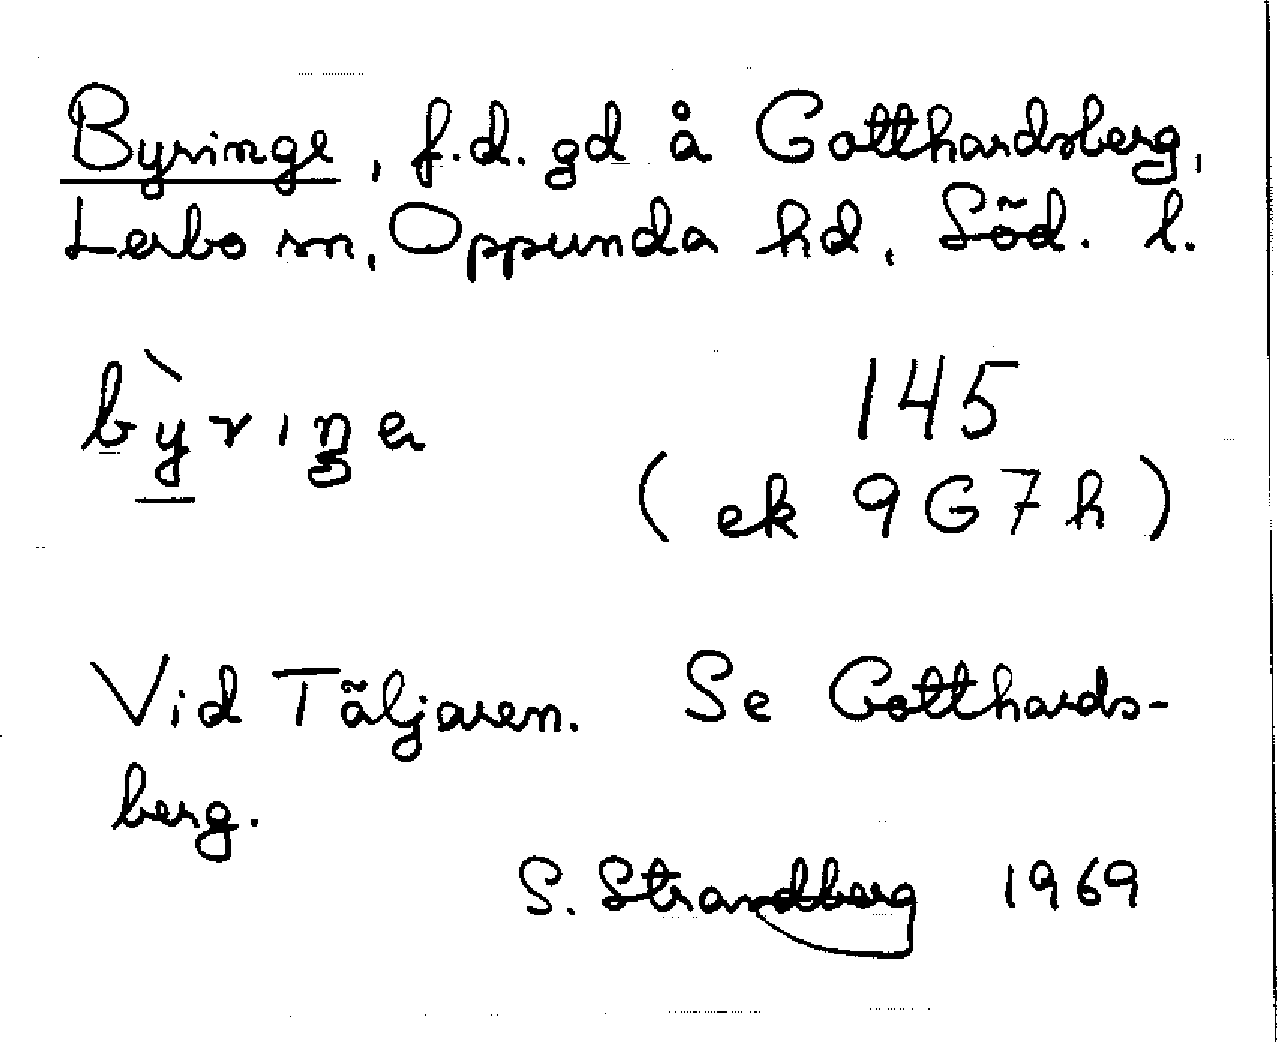 Byringe, f.d. gd å Gotthardsberg,
Lerbo sn, Oppunda hd, Söd. l.
bỳrıŋe 145
(ek 9G7h)
Vid Täljaren. Se Gotthards-
berg.
S. Strandberg 1969